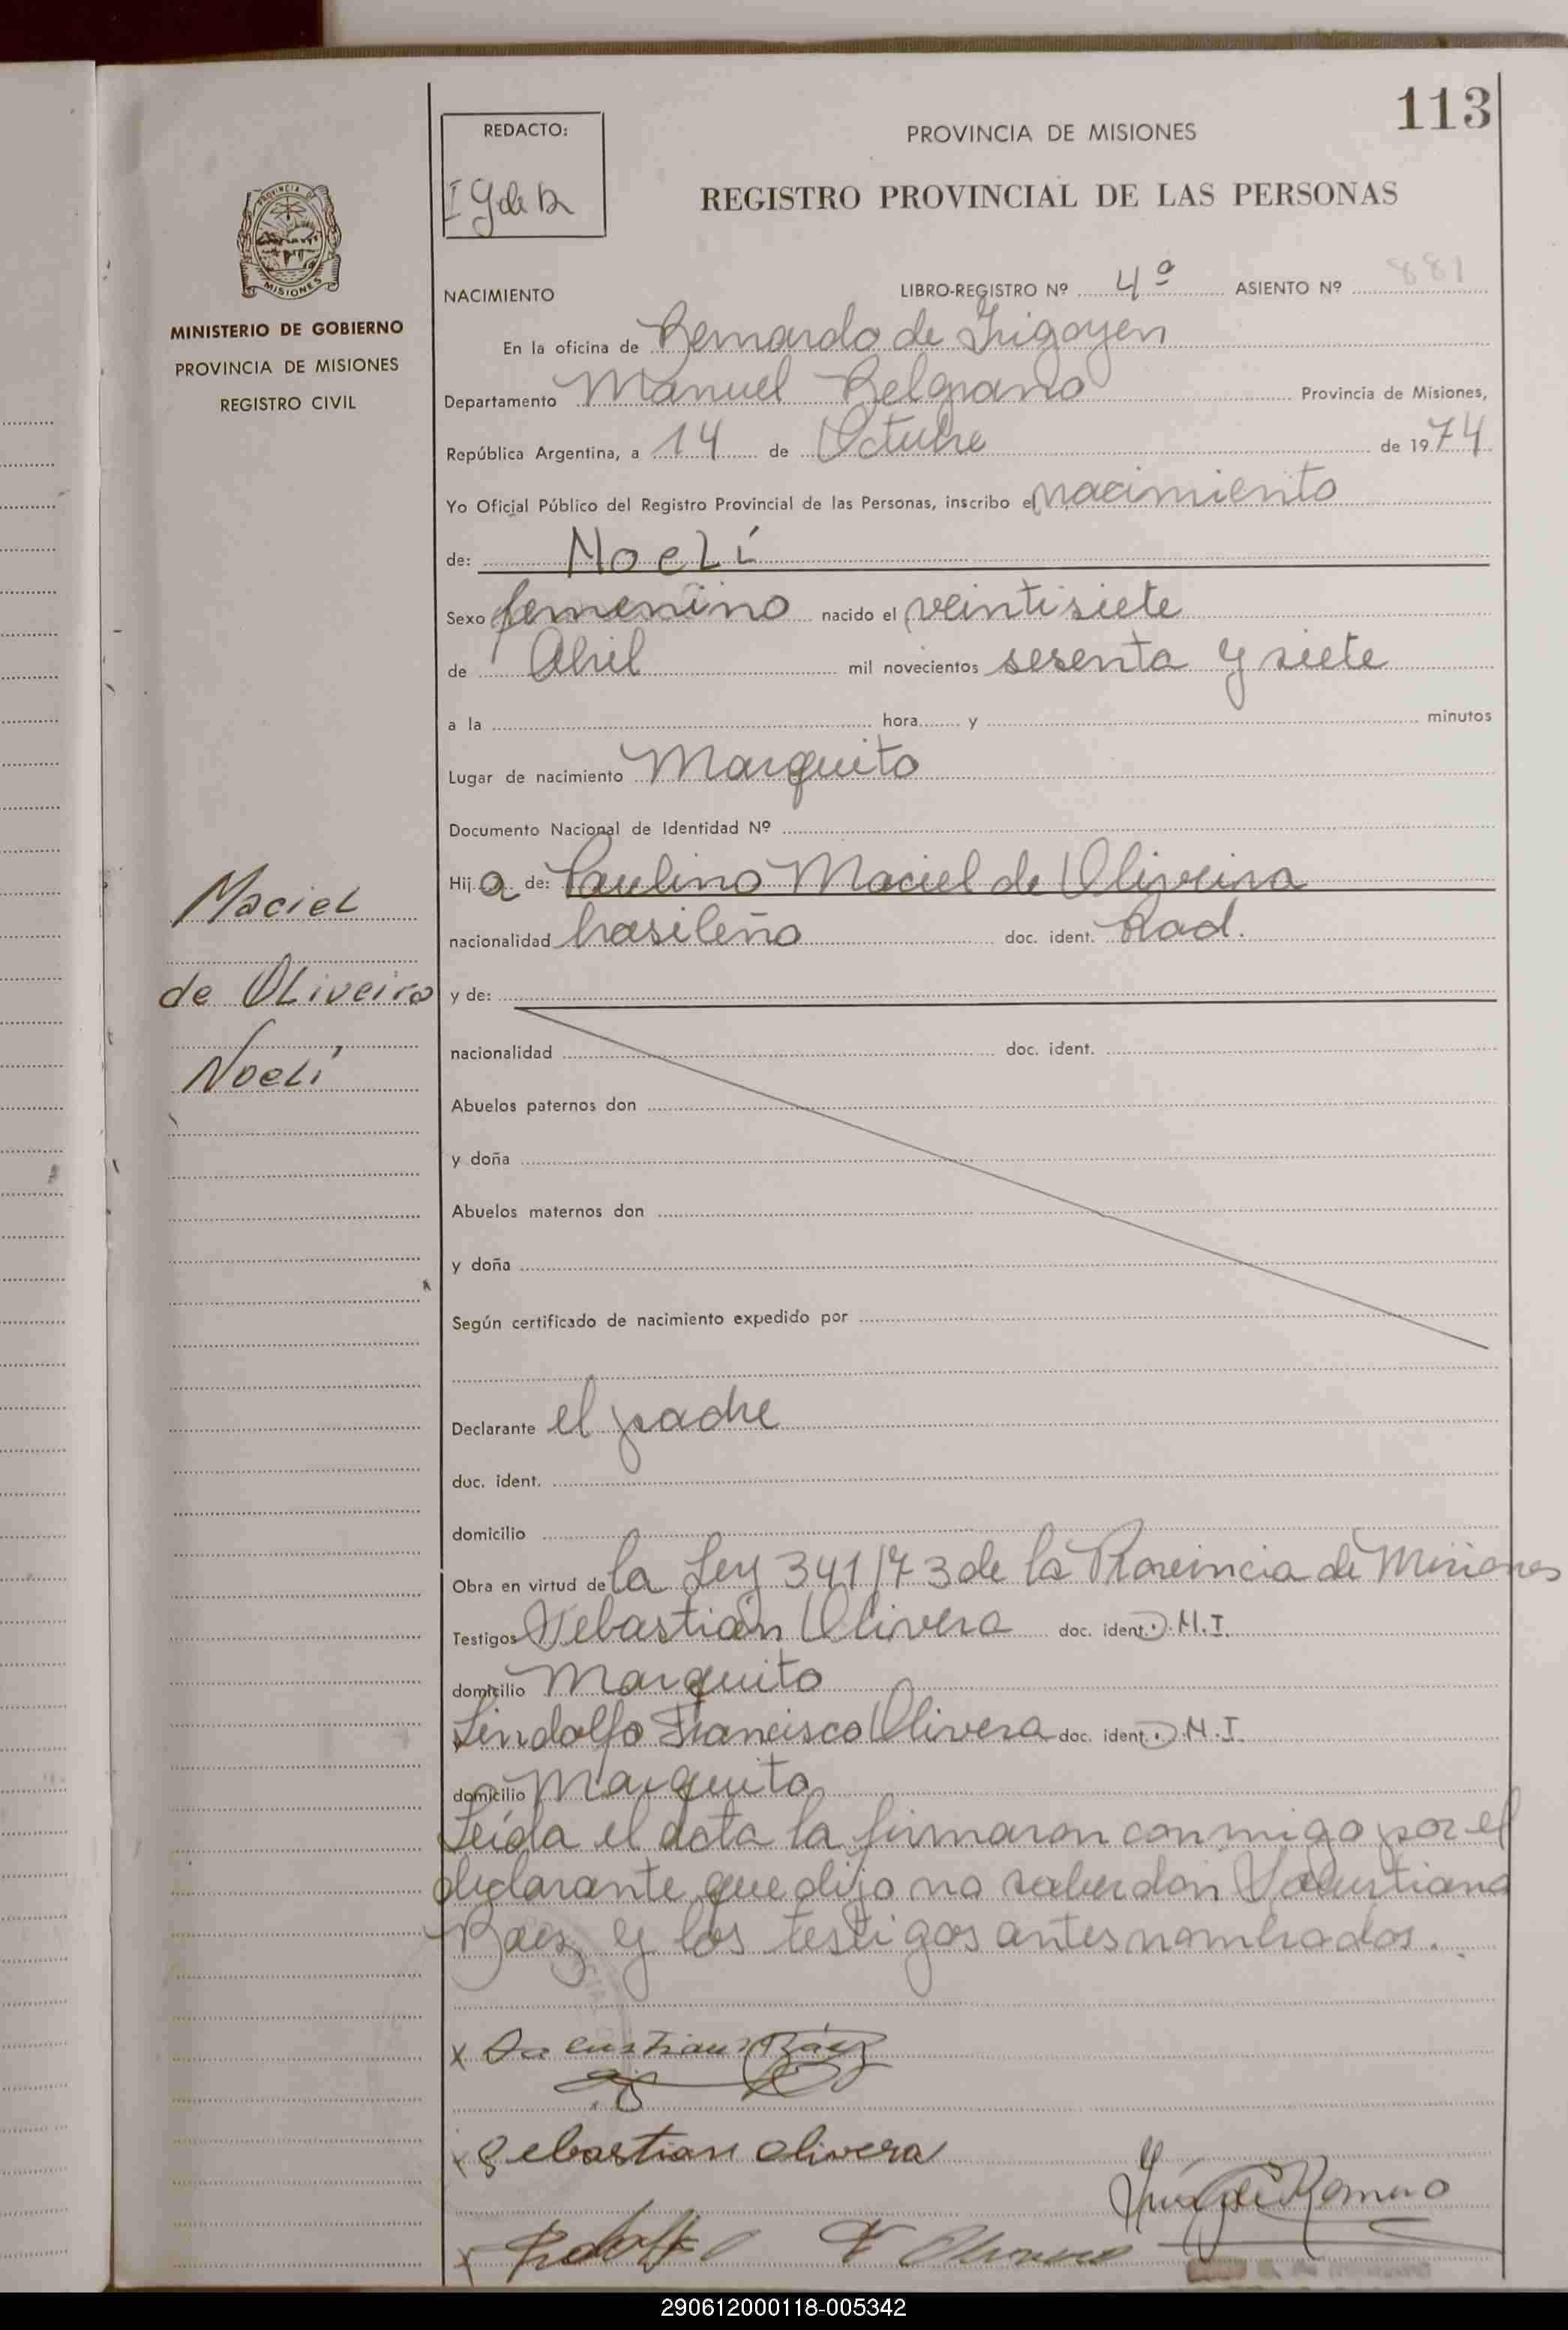 113
REDACTO:
I G de R
PROVINCIA DE MISIONES
REGISTRO PROVINCIAL DE LAS PERSONAS
PROVINCIA DE
MISIONES
MINISTERIO DE GOBIERNO
PROVINCIA DE MISIONES
REGISTRO CIVIL
NACIMIENTO LIBRO-REGISTRO Nº 4º ASIENTO Nº 881
En la oficina de Bernardo de Irigoyen
Departamento Manuel Belgrano Provincia de Misiones,
República Argentina, a 14 de Octubre de 1974
Yo Oficial Público del Registro Provincial de las Personas, inscribo el nacimiento
de: Noelí
Sexo femenino nacido el veintisiete
de Abril mil novecientos sesenta y siete
a la hora y minutos
Lugar de nacimiento Marquito
Documento Nacional de Identidad Nº
Hija de: Paulino Maciel de Oliveira
nacionalidad brasileño doc. ident. Rad.
Maciel
de Oliveira
Noelí
y de:
nacionalidad doc. ident.
Abuelos paternos don
y doña
Abuelos maternos don
y doña
Según certificado de nacimiento expedido por
Declarante el padre
doc. ident.
domicilio
Obra en virtud de la Ley 341/73 de la Provincia de Misiones
Testigos Sebastián Olivera doc. ident. M.I.
domicilio Marquito
Lindolfo Francisco Olivera doc. ident. M.I.
domicilio Marquito
Leída el acta la firmaron conmigo por el
declarante que dijo no saber don Sacustiano
Baez y los testigos antes nombrados.
x Sacustiano Báez
x Sebastian Olivera
x F Olivera
de Romero
290612000118-005342